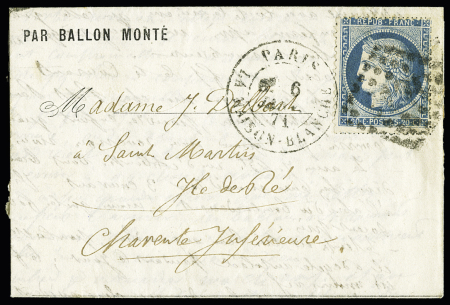 PAR BALLON MONTÉ
PARIS
LA MAISON-BLANCHE
6
71
REPUB. FRANC.
20 C. POSTES 20 C.
Madame J.
à Saint Martin
Ile de Ré
Charente Inférieure